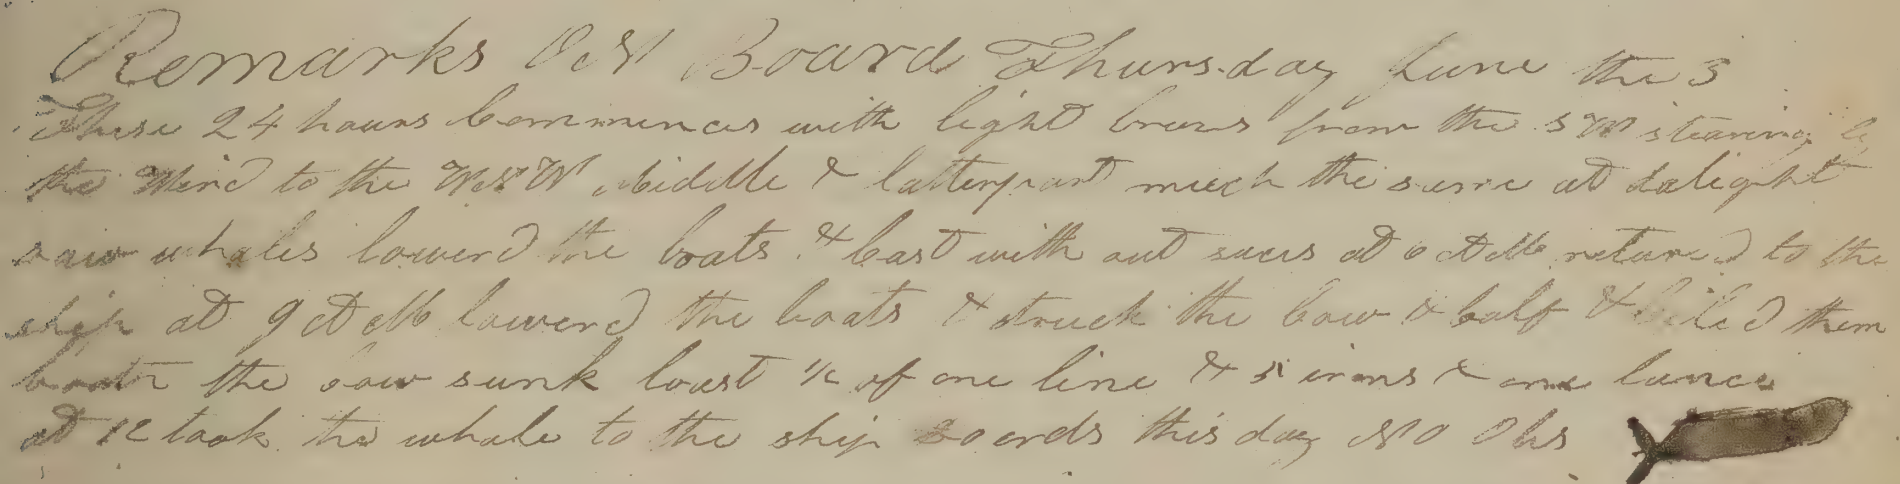 Remarks On Board Thursday June the 3
These 24 hours Commences with light breses from the SW stearing by
the Wind to the WNW Middle & latterpart much the same at dalight
saw whales lowerd the boats & Cast with out suces at 6 At M returned to the
ship at 9 At M lowerd the boats & struck the Cow & Calf & kiled them
both the Cow sunk loust ½ of one line & 5 irons & one lance
at 12 took the whale to the ship So ends this day No Obs